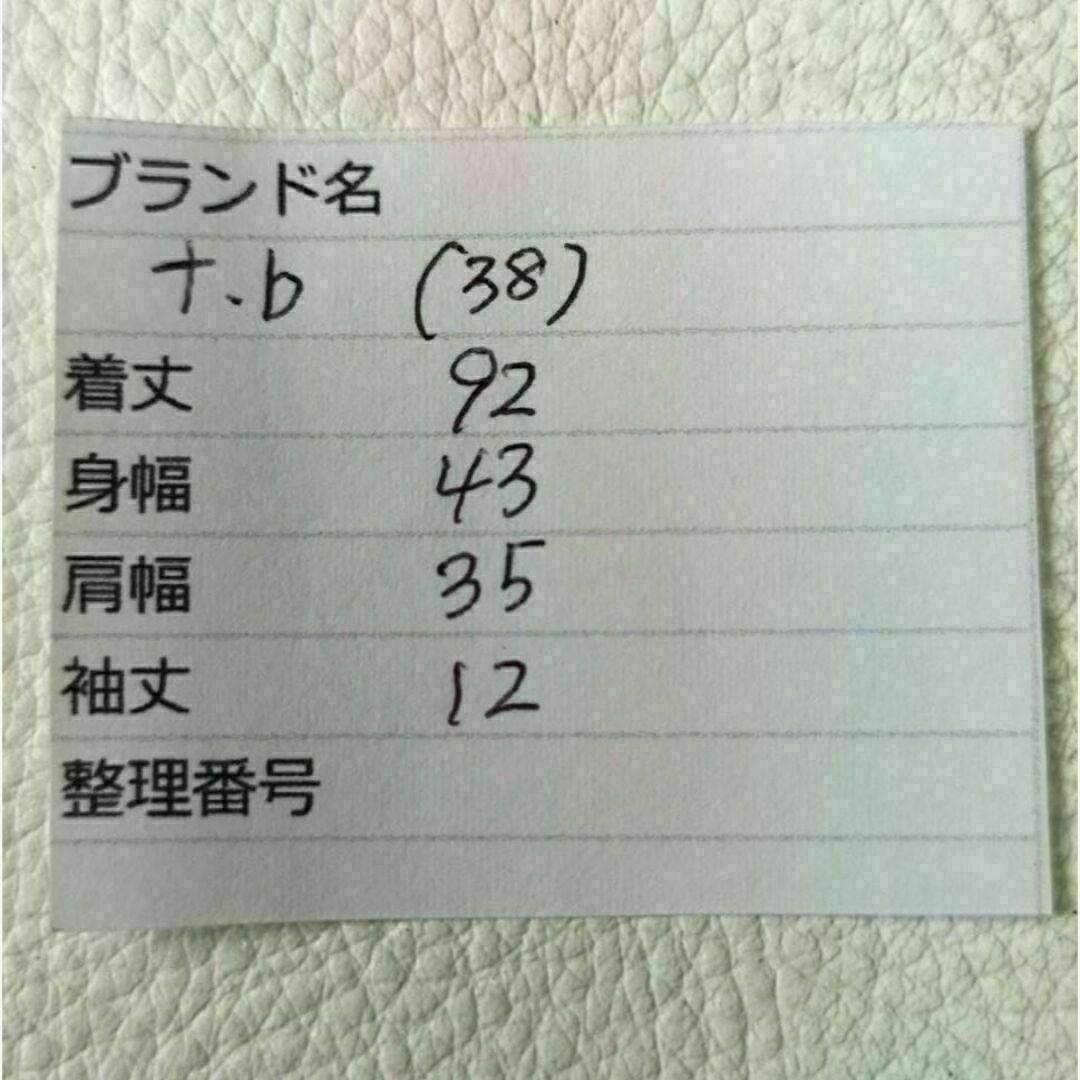 ブランド名
t.b (38)
着丈 92
身幅 43
肩幅 35
袖丈 12
整理番号